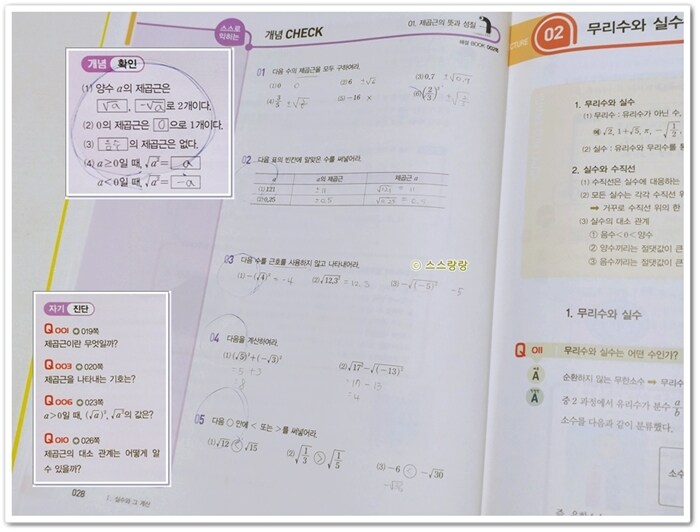 스스로
학하는
개념 CHECK
01. 제곱근의 뜻과 성질
해설 BOOK 002쪽
개념 확인
(1) 양수 a의 제곱근은
√a, -√a로 2개이다.
(2) 0의 제곱근은 0으로 1개이다.
(3) 음수의 제곱근은 없다.
(4) a≥0일 때, √a² = a
a<0일 때, √a² = -a
01 다음 수의 제곱근을 모두 구하여라.
(1) 0 0 (2) 6 ±√6 (3) 0.7 ±√0.7
(5) -16 ×
02 다음 표의 빈칸에 알맞은 수를 써넣어라.
a a의 제곱근 제곱근 a
(1) 121 ±11 √121 = 11
(2) 0.25 ±0.5
03 다음 수를 근호를 사용하지 않고 나타내어라.
(1) -(√4)² = -4 (2) √12.3² = 12.3 (3) -√(-5)² -5
04 다음을 계산하여라.
(1) (√5)²+(-√3)² (2) √17²-√(-13)²
=5+3 =17-13
=8 =4
05 다음 ○ 안에 < 또는 >를 써넣어라.
(1) √12 < √15 (2) √1/3 > √1/5 (3) -6 < -√30
자기 진단
Q 001 019쪽
제곱근이란 무엇일까?
Q 003 020쪽
제곱근을 나타내는 기호는?
Q 006 023쪽
a>0일 때, (√a)², √a²의 값은?
Q 010 026쪽
제곱근의 대소 관계는 어떻게 알
수 있을까?
028 Ⅰ. 실수와 그 계산
© 스스랑랑
LECTURE 02 무리수와 실수
1. 무리수와 실수
(1) 무리수 : 유리수가 아닌 수,
예 √2, 1+√5, π, -√1/2,
(2) 실수 : 유리수와 무리수를 통
2. 실수와 수직선
(1) 수직선은 실수에 대응하는
(2) 모든 실수는 각각 수직선 위
➡ 거꾸로 수직선 위의 한
(3) 실수의 대소 관계
① 음수<0<양수
② 양수끼리는 절댓값이 큰
③ 음수끼리는 절댓값이 큰
1. 무리수와 실수
Q 011 무리수와 실수는 어떤 수인가?
A 순환하지 않는 무한소수 ➡ 무리수
A 중2 과정에서 유리수가 분수 a/b
소수를 다음과 같이 분류했다.
소수